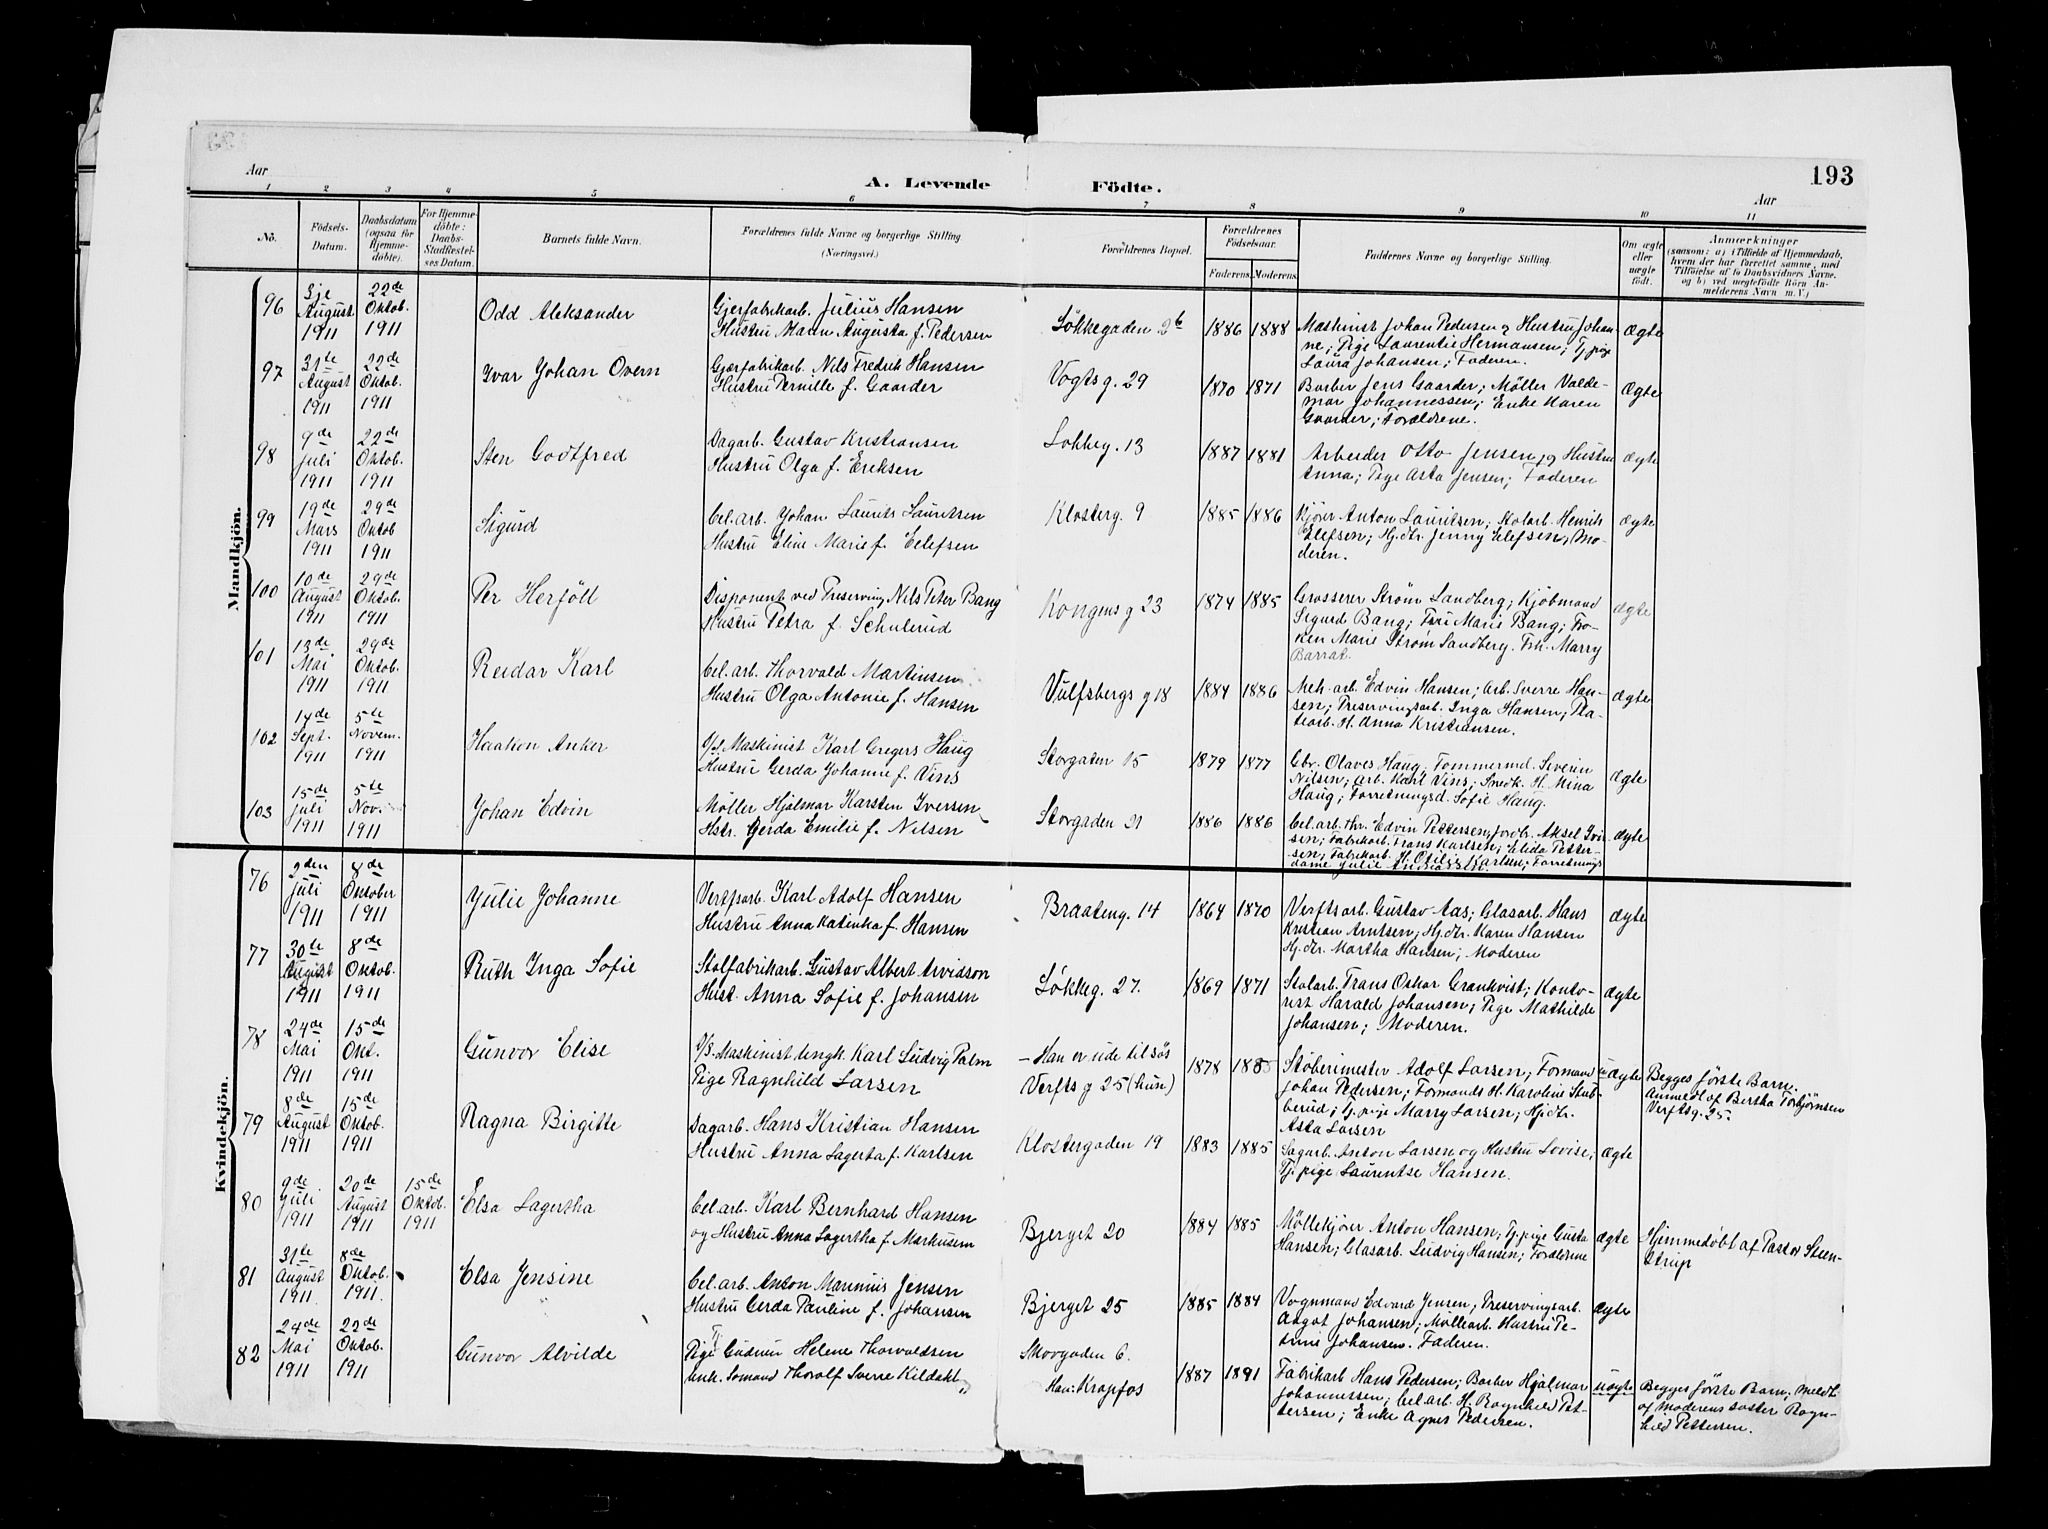 193
Aar
A. Levende Födte.
Aar
1 2 3 4 5 6 7 8 9 10 11
No.
Födsels-Datum.
Daabsdatum (ogsaa for Hjemme-döbte).
For Hjemme-döbte: Daabs-Stadfæstel-ses Datum.
Barnets fulde Navn.
Forældrenes fulde Navne og borgerlige Stilling (Næringsvei.)
Forældrenes Bopæl.
Forældrenes Födselsaar.
Faderens. Moderens.
Faddernes Navne og borgerlige Stilling.
Om ægte eller uægte födt.
Anmærkninger
(saasom: a) i Tilfælde af Hjemmedaab, hvem der har forrettet samme, med Tilföielse af to Daabsvidners Navne, og b) ved uægtefödte Börn An-melderens Navn m. V.)
Mandkjön.
96 3je August 1911 22de Oktob. 1911 Odd Aleksander
Gjerfabrikarb. Julius Hansen
Hustru Maren Augusta f. Pedersen
Løkkegaden 2b 1886 1888
Maskinist Johan Pedersen og Hustru Johan-
ne; Pige Laurentie Hermansen; Tj. pige
Laura Johansen; Faderen.
Ægte
97 31te August 1911 22de Oktob. 1911 Ivar Johan Overn
Gjerfabrikarb. Nils Fredrik Hansen
Hustru Pernille f. Gaarder
Vogtsg. 29 1870 1871
Barber Jens Gaarder; Møller Valde-
mar Johannessen; Enke Karen
Gaarder; Forældrene.
Ægte
98 9de Juli 1911 22de Oktob. 1911 Sten Godtfred
Dagarb. Gustav Kristiansen
Hustru Olga f. Eriksen
Løkkeg. 13 1887 1881
Arbeider Otto Jensen og Hustru
Anna; Pige Asta Jensen; Faderen
ægte
99 19de Mars 1911 29de Oktob 1911 Sigurd
Cel. arb. Johan Laurits Lauritsen
Hustru Eline Marie f. Eelefsen
Klosterg. 9 1885 1886
Kjører Anton Lauritsen; Stolarb. Henrik
Elefsen; Hj. dtr. Jenny Elefsen; Mo-
deren.
ægte
100 10de August 1911 29de Oktob. 1911 Per Herföll
Disponent ved Preserving Nils Peter Bang
Hustru Petra f. Schulerud
Kongens g 23 1874 1885
Grosserer Strøm Sandberg; Kjøbmand
Sigurd Bang; Fru Marie Bang; Frø-
ken Marie Strøm Sandberg. Frk. Marry
Barrat.
ægte
101 13de Mai 1911 29de Oktob. 1911 Reidar Karl
Cel. arb. Thorvald Martinsen
Hustru Olga Antonie f. Hansen
Vulfsbergs g 18 1884 1886
Mek. arb. Edvin Hansen; Arb. Sverre Han-
sen; Preservingsarb. Inga Hansen; Fla-
tearb. H. Anna Kristiansen.
ægte
102 14de Sept. 1911 5te Novem. 1911 Haakon Anker
Maskinist Karl Gregers Haug
Hustru Gerda Johanne f. Vins
Storgaden 15 1879 1877
Olaves Haug; Tømmermd. Severin
Nilsen; Arb. Karl Vins; Smedk. H. Mina
Haug; Forretningsd. Sofie Haug.
ægte
103 15de Juli 1911 5te Nov. 1911 Johan Edvin
Møller Hjalmar Karsten Iversen
Hstr. Gerda Emilie f. Nilsen
Storgaden 21 1886 1886
Cel. arb. hr. Edvin Pettersen; Jordbr. Aksel Iver-
sen; Fabrikarb. Frans Karlsen; Elida Petter-
sen; Fabrikarb. H. Otilie Karlsen; Forretnings
dame Julie Andersen.
ægte
Kvindekjön.
76 2den Juli 1911 8de Oktober 1911 Julie Johanne
Verftsarb. Karl Adolf Hansen
Hustru Anna Katinka f. Hansen
Braateng. 14 1864 1870
Verftsarb. Gustav Aas; Glasarb. Hans
Kristian Arntsen; Hj. dtr. Karen Hansen
Hj. dtr. Martha Hansen; Moderen
ægte
77 30te August 1911 8de Oktob. 1911 Ruth Inga Sofie
Stolfabrikarb. Gustav Albert Arvidson
Hust. Anna Sofie f. Johansen
Løkkeg. 27. 1869 1871
Stolarb. Frans Oskar Grankvist; Konto-
rist Harald Johansen; Pige Mathilde
Johansen; Moderen.
ægte
78 24de Mai 1911 15de Okt. 1911 Gunvor Elise
Maskinist Ungk. Karl Ludvig Palm
Pige Ragnhild Larsen
- Han er ude tilsøs
Verfts g 25 (hun) 1878 1885
Støberimester Adolf Larsen; Formand
Johan Pedersen; Formands H. Karoline Stub-
berud; Tj. pige Marry Larsen; Hj. dtr.
Asta Larsen
uægte
Begges første Barn.
Anmeldt af Bertha Torbjørnsen
Verftsg. 25.
79 8de August 1911 15de Oktob. 1911 Ragna Birgitte
Dagarb. Hans Kristian Hansen
Hustru Anna Lagerta f. Karlsen
Klostergaden 19 1883 1885
Sagarb. Anton Larsen og Hustru Lovise;
Tj. pige Laurentse Hansen.
ægte
80 9de Juli 1911 20de August 1911 15de Oktob. 1911 Elsa Lagertha
Cel. arb. Karl Bernhard Hansen
og Hustru Anna Lagertha f. Markusen
Bjerget 20 1884 1885
Møllekjører Anton Hansen; Tj. pige Gusta
Hansen; Glasarb. Ludvig Hansen; Forældrene
ægte
Hjemmedøbt af Pastor Steen-
strup
81 31te August 1911 8de Oktob. 1911. Elsa Jensine
Cel. arb. Anton Marinius Jensen
Hustru Gerda Pauline f. Johansen
Bjerget 25 1885 1884
Vognmand Edvard Jensen; Preservingsarb.
Aagot Johansen; Møllearb. Hustru Pe-
trine Johansen. Faderen.
ægte
82 24de Mai 1911 22de Oktob. 1911 Gunvor Alvilde
Tj. Pige Gudrun Helene Thorvaldsen
Unk. Sømand Thoralf Sverre Kildahl
Skovgaden 6.
Han: Krapfos 1887 1891
Fabrikarb Hans Pedersen; Barber Hjalmar
Johannessen; Cel. arb. H. Ragnhild Pet-
tersen; Enke Agnes Pedersen.
uægte
Begges første Barn; meldt
af Moderens søster Ragn-
hild Pettersen.